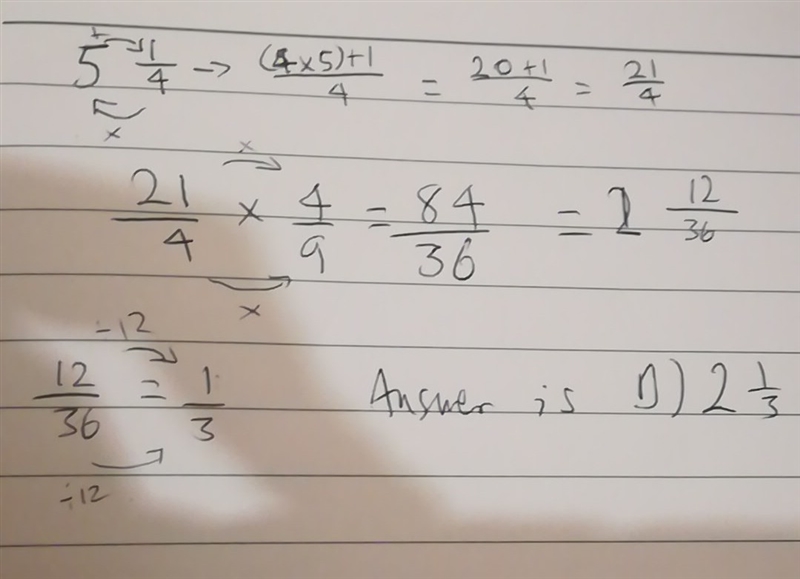 5 1/4 → (4×5)+1/4 = 20+1/4 = 21/4
21/4 × 4/9 = 84/36 = 2 12/36
÷12
12/36 = 1/3 Answer is D) 2 1/3
÷12